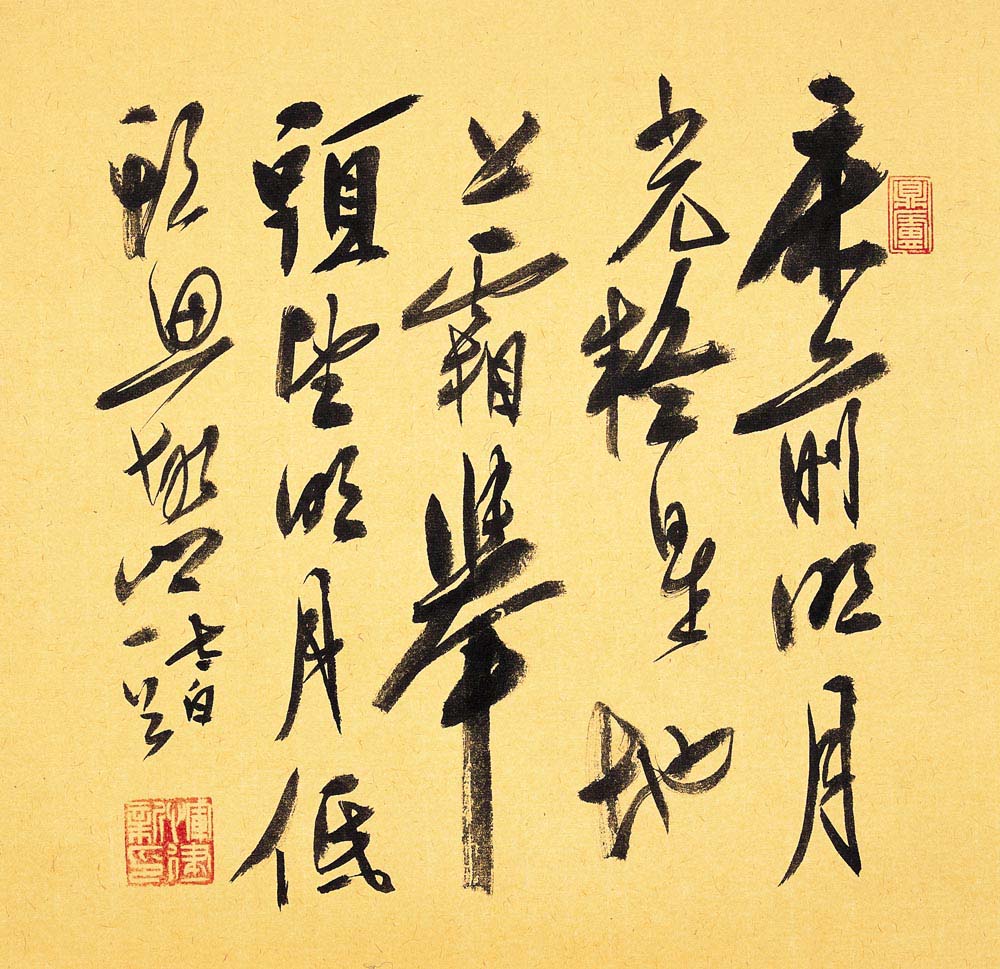 床前明月
光疑是地
上霜舉
頭望明月低
頭思故鄉
太白
惲建新印